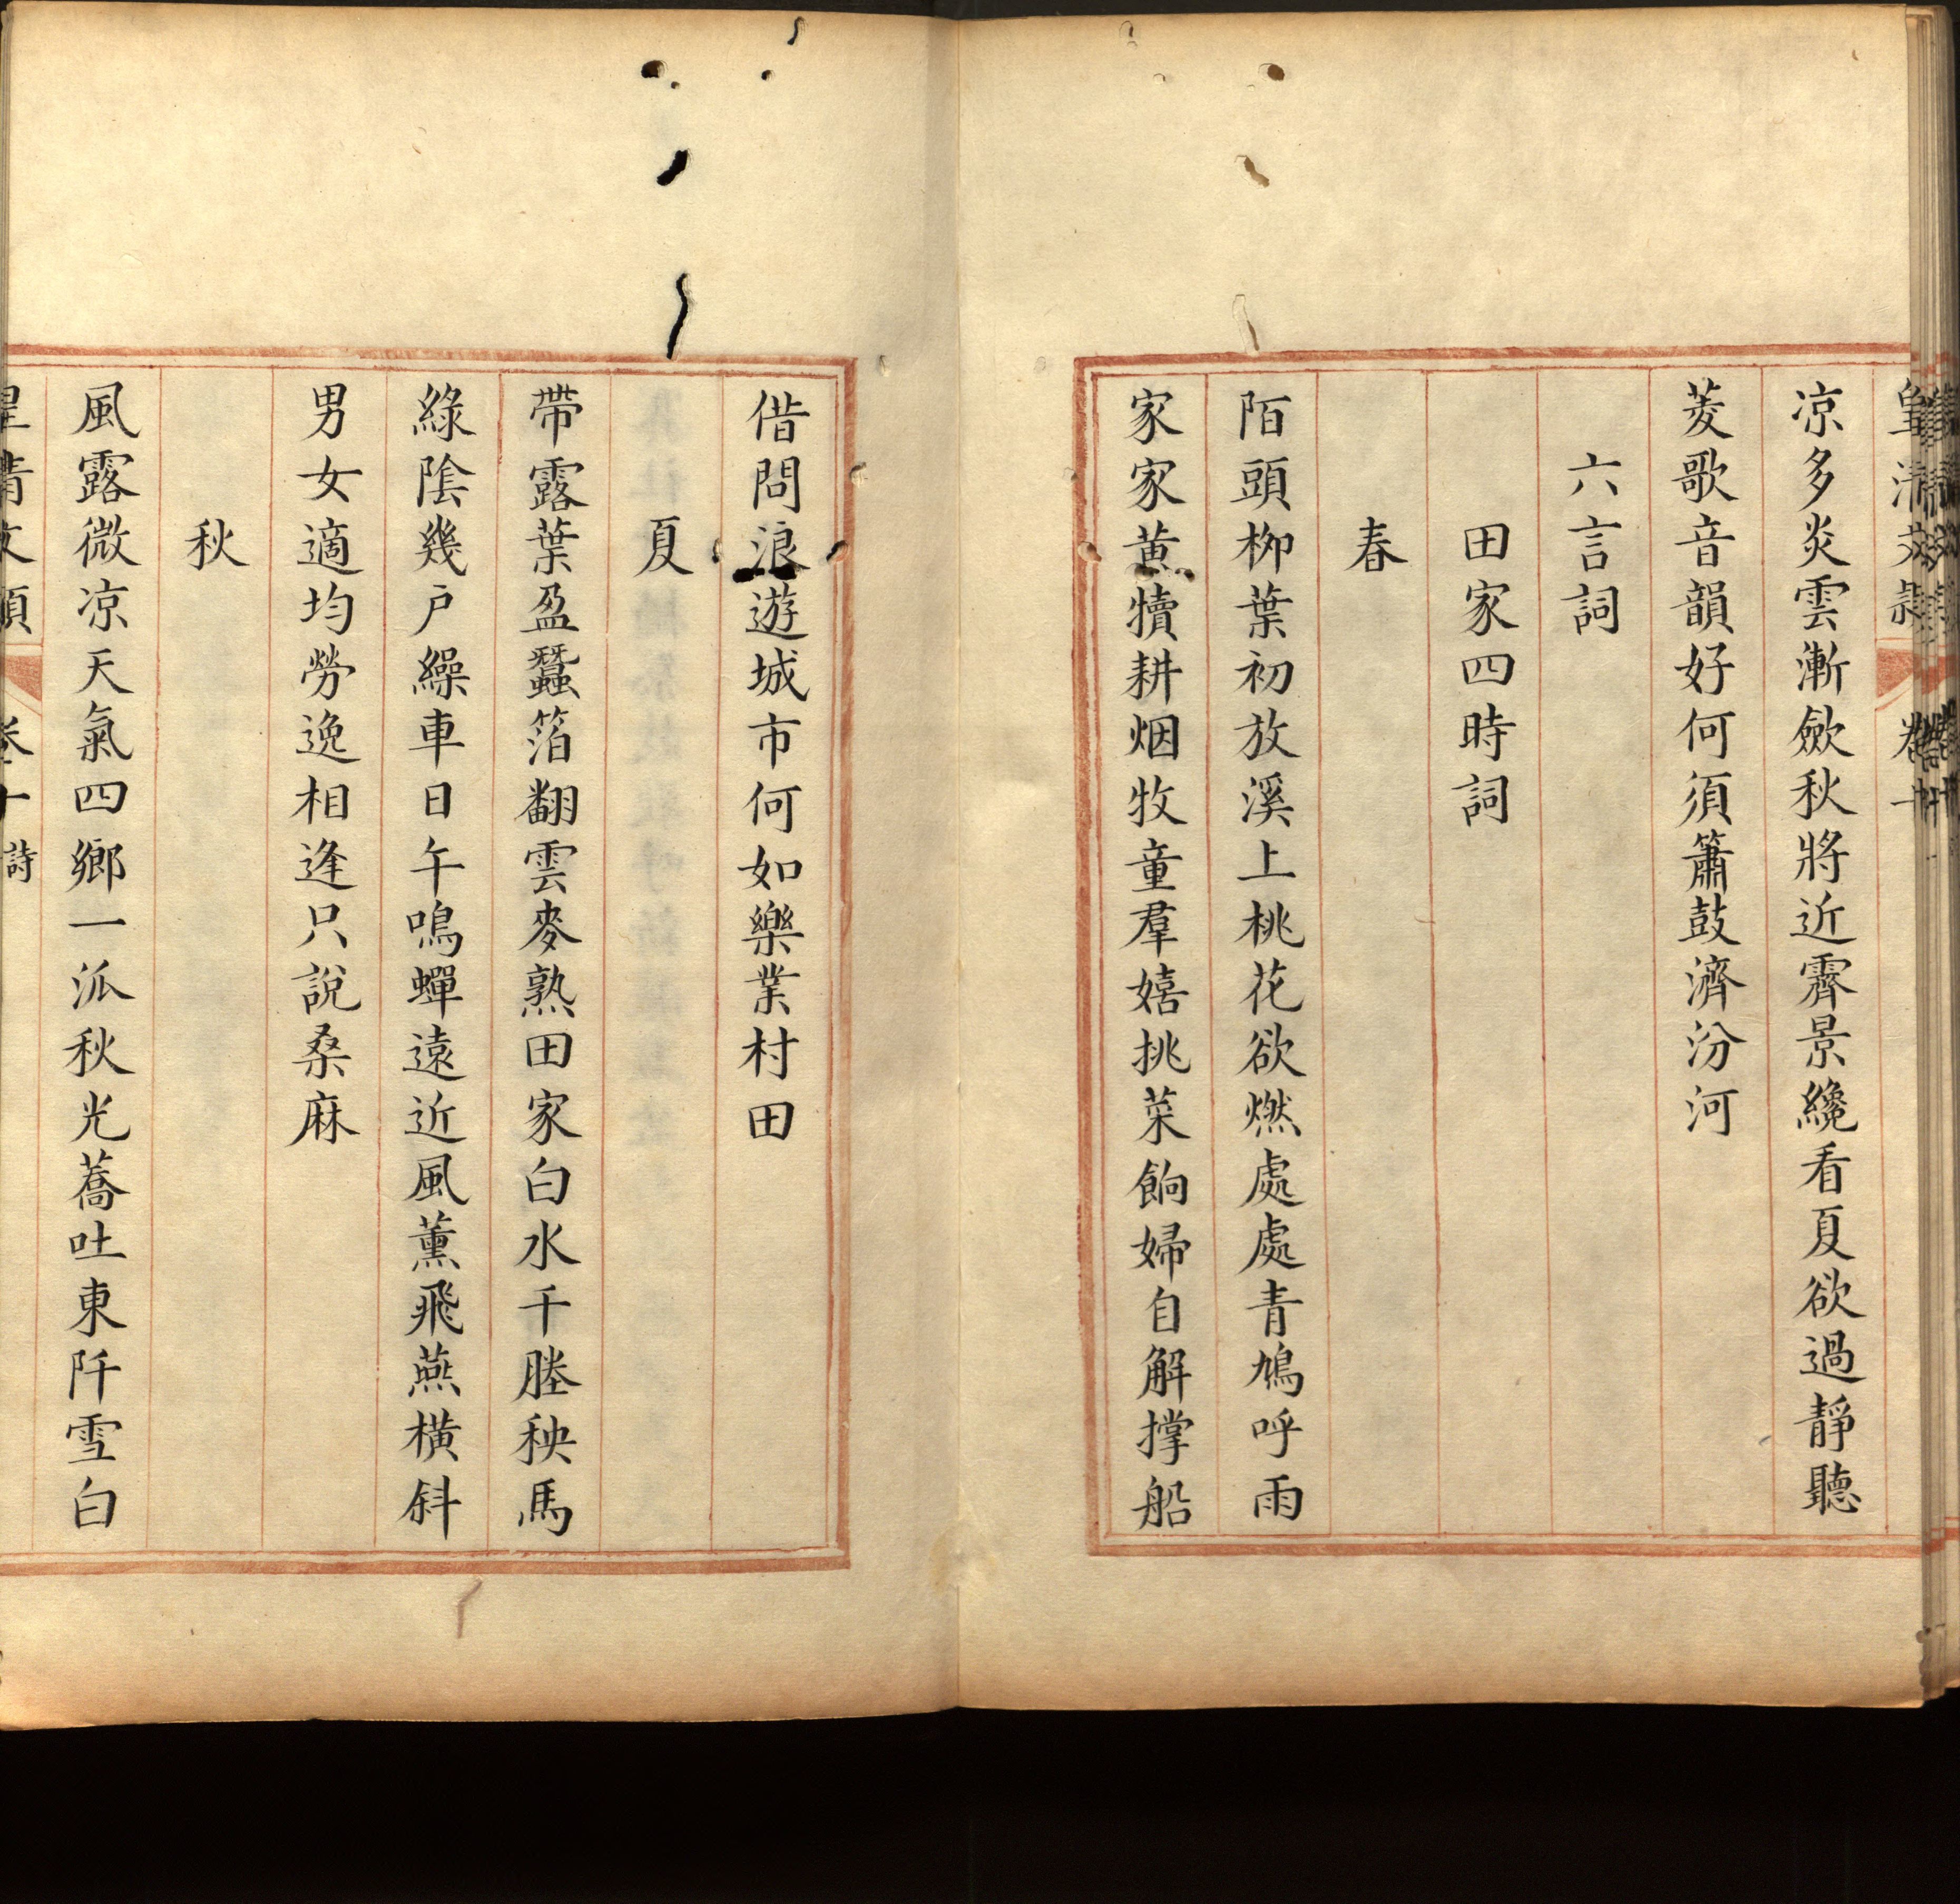 皇清文穎　卷十
凉多炎雲漸斂秋將近霽景纔看夏欲過靜聽
菱歌音韻好何須簫鼓濟汾河
六言詞
田家四時詞
春
陌頭柳葉初放溪上桃花欲燃處處青鳩呼雨
家家黃犢耕烟牧童羣嬉挑菜餉婦自解撑船
借問浪遊城市何如樂業村田
夏
帶露葉盈蠶箔翻雲麥熟田家白水千塍秧馬
綠陰幾戶繰車日午鳴蟬遠近風薰飛燕橫斜
男女適均勞逸相逢只說桑麻
秋
風露微凉天氣四鄉一派秋光蕎吐東阡雪白
皇清文穎　卷十　詩